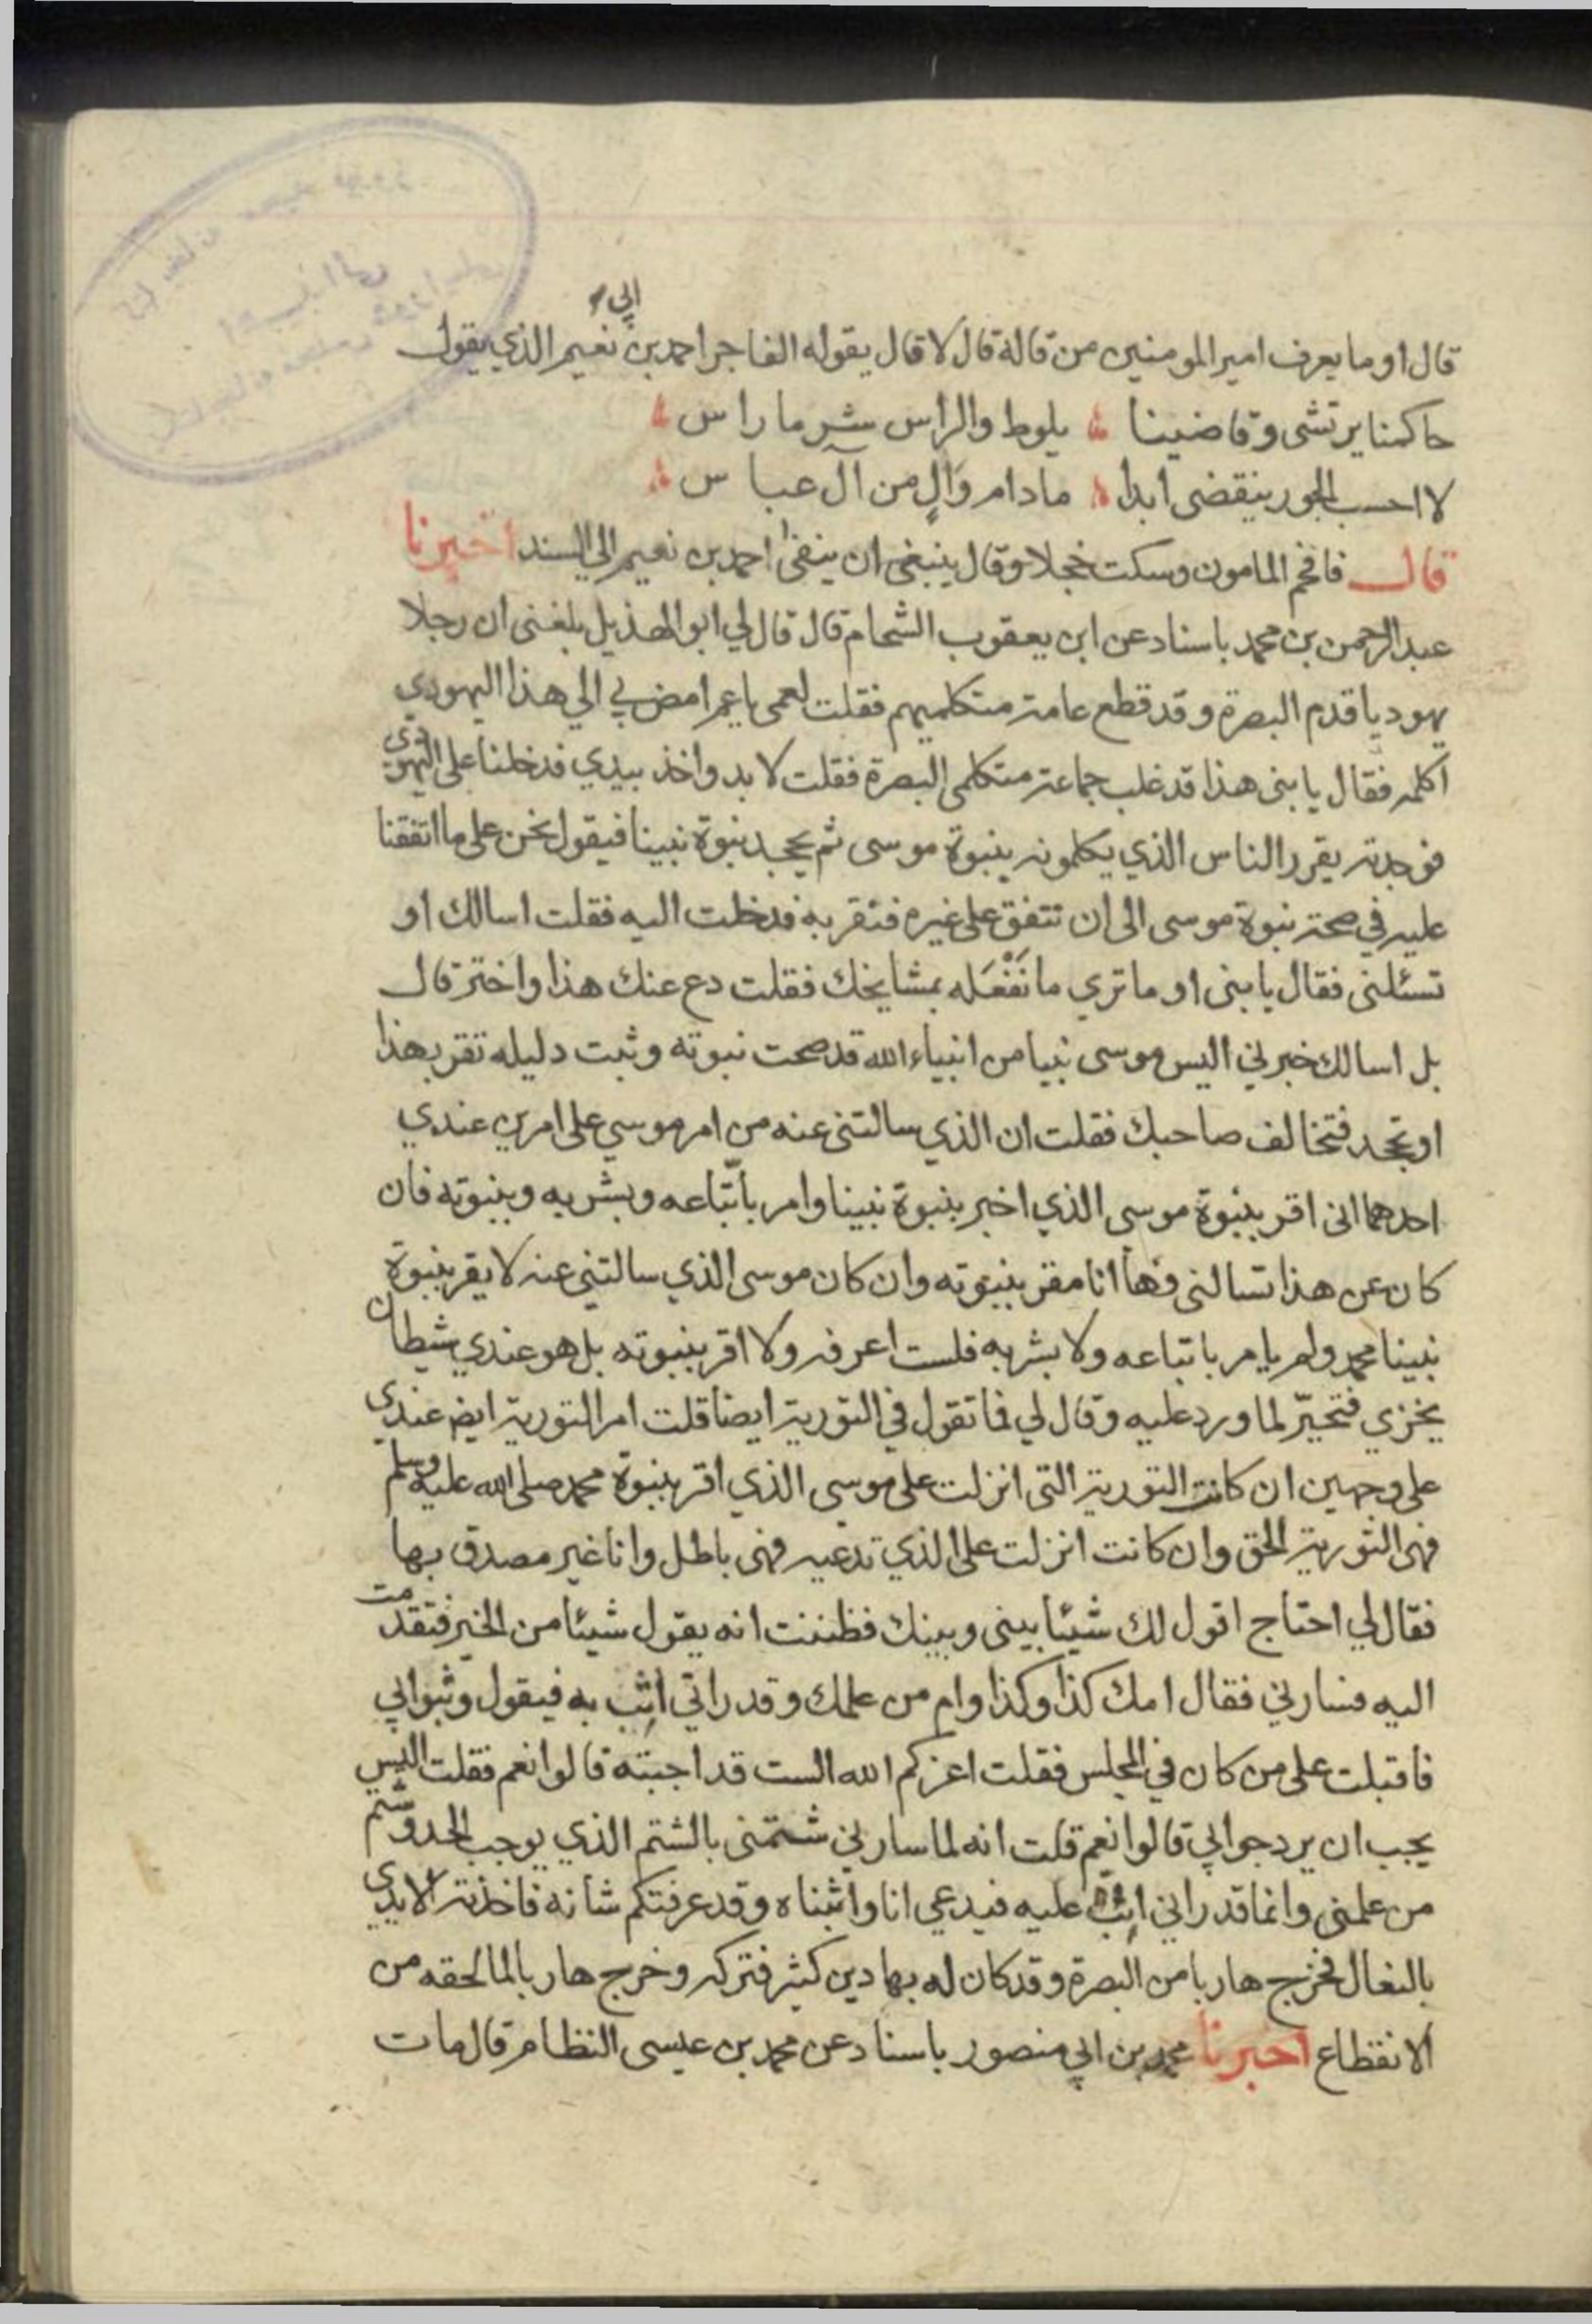 قال او ما يعرف امير المومنين من قالة قال لا قال يقوله الفاجر احمد بن ابي نعيم الذي يقول
حاكمنا يرتشى وقاضينا يلوط والراس شر ما راس
لا احسب الجور ينقضى ابدا مادام وَالٍ من آل عبا س
قال فافحم المامون وسكت خجلا وقال ينبغى ان ينفى احمد بن نعيم الي السند اخبرنا
عبد الرحمن بن محمد باسناد عن ابن يعقوب الشحام قال قال لي ابو الهذيل بلغنى ان رجلا
يهوديا قدم البصرة وقد قطع عامة متكلميهم فقلت لعمى يا عم امض بي الي هذا اليهودي
اكلمه فقال يا بنى هذا قد غلب جماعة متكلمى البصرة فقلت لا بد واخذ بيدي فدخلنا على اليهودي
فوجدته يقرر الناس الذي يكلمونه بنبوة موسى ثم يجحد نبوة نبينا فيقول نحن على ما اتفقنا
عليه في صحة نبوة موسى الى ان تتفق على غيره فنقر به فدخلت اليه فقلت اسالك او
تسئلنى فقال يا بنى او ما تري ما نَفْعَله بمشايخك فقلت دع عنك هذا واختر قال
بل اسالك خبرني اليس موسى نبيا من انبياء الله قد صحت نبوته وثبت دليله تقر بهذا
او تجحد فتخالف صاحبك فقلت ان الذي سالتنى عنه من امر موسي على امرين عندي
احدهما انى اقر بنبوة موسي الذي اخبر بنبوة نبينا وامر باتّباعه وبشر به وبنبوته فان
كان عن هذا تسالنى فها انا مقر بنبوته وان كان موسى الذي سالتني عنه لا يقر بنبوة
نبينا محمد ولم يامر باتباعه ولا بشر به فلست اعرفه ولا اقر بنبوته بل هو عندي شيطان
يخزي فتحيّر لما ورد عليه وقال لي فما تقول في التورية ايضا قلت امر التورية ايض عندي
على وجهين ان كانت التورية التى انزلت على موسى الذي اقر بنبوة محمد صلى الله عليه وسلم
فهى التورية الحق وان كانت انزلت على الذي تدعيه فهى باطل وانا غير مصدق بها
فقال لي احتاج اقول لك شيئا بينى وبينك فظننت انه يقول شيئا من الخير فتقدمت
اليه فسارني فقال امك كذا وكذا وام من علمك وقدر اني اثب به فيقول وثبوا بي
فاقبلت على من كان في المجلس فقلت اعزكم الله الست قد اجبته قالوا نعم فقلت اليس
يجب ان يرد جوابي قالوا نعم قلت انه لما سارني شتمنى بالشتم الذي يوجب الحد وشتم
من علمنى وانما قدر اني اثب عليه فيدعي انا واثبناه وقد عرفتكم شانه فاخذته الايدي
بالنعال فخرج هاربا من البصرة وقد كان له بها دين كثير فتركه وخرج هاربا لما لحقه من
الانقطاع اخبرنا محمد بن ابي منصور باسناد عن محمد بن عيسى النظام قال مات